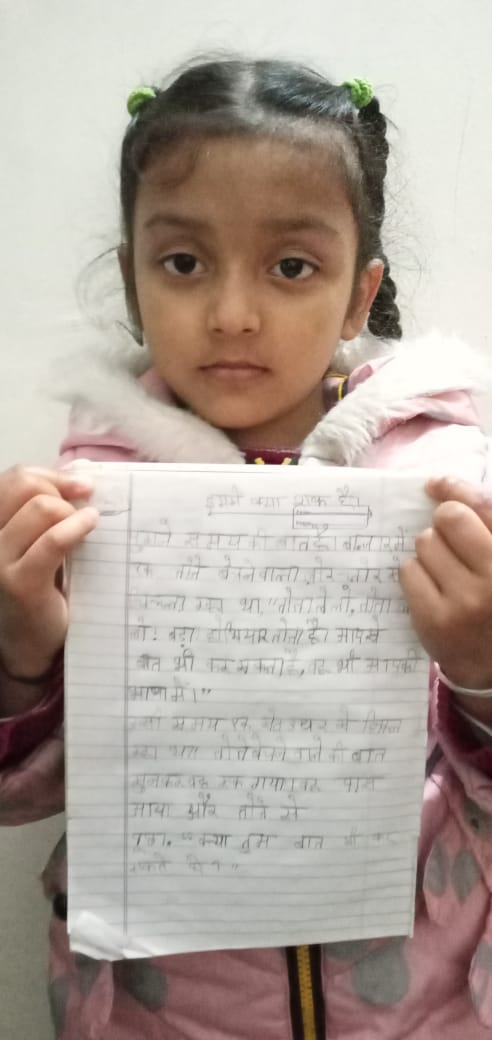 इसमें क्या शक है।
पुराने समय की बात है। बाजार में
एक तोते बेचनेवाला जोर जोर से
चिल्ला रहा था, "तोता ले लो, तोता
लो! बड़ा होशियार तोता है। आपसे
बात भी कर सकता है, वह भी आपकी
भाषा में।"
उसी समय एक सेठ उधर से निकल
रहा था। तोते बेचने वाले की बात
सुनकर वह रुक गया। वह पास
आया और तोते से
पूछा, "क्या तुम बात भी कर
सकते हो?"